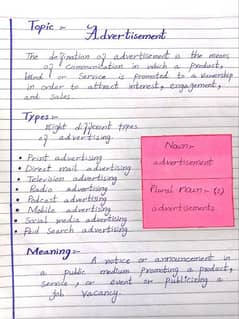 Topic :-
Advertisement
The defination of advertisement is the means
of communication in which a product,
brand or Service is promoted to a viewership
in order to attract interest, engagement,
and sales.
Types :-
Eight different types
of advertising.
• Print advertising
• Direct mail advertising
• Television advertising
• Radio advertising
• Podcast advertising
• Mobile advertising
• Social media advertising
• Paid Search advertising
Noun:-
advertisement
Plural noun:- (s)
advertisements
Meaning :-
A notice or announcement in
a public medium promoting a product,
service, or event or publicizing a
job vacancy.